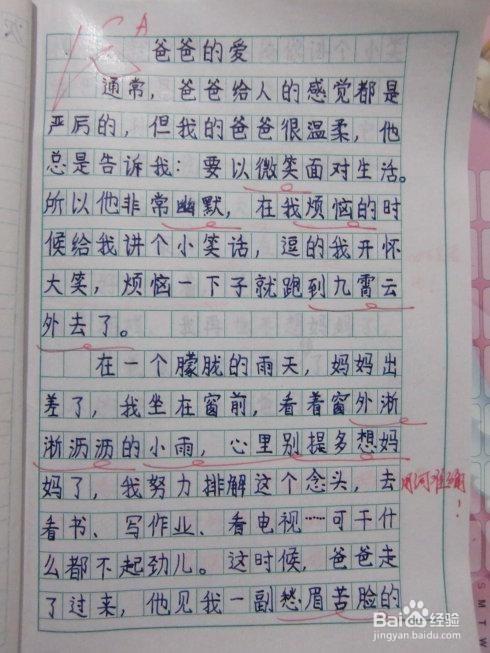 A
爸爸的爱
通常，爸爸给人的感觉都是
严厉的，但我的爸爸很温柔，他
总是告诉我：要以微笑面对生活。
所以他非常幽默，在我烦恼的时
候给我讲个小笑话，逗的我开怀
大笑，烦恼一下子就跑到九霄云
外去了。
在一个朦胧的雨天，妈妈出
差了，我坐在窗前，看着窗外淅
淅沥沥的小雨，心里别提多想妈
妈了，我努力排解这个念头，去
看书、写作业、看电视……可干什
么都不起劲儿。这时候，爸爸走
了过来，他见我一副愁眉苦脸的
Baidu经验
jingyan.baidu.com
S M T W